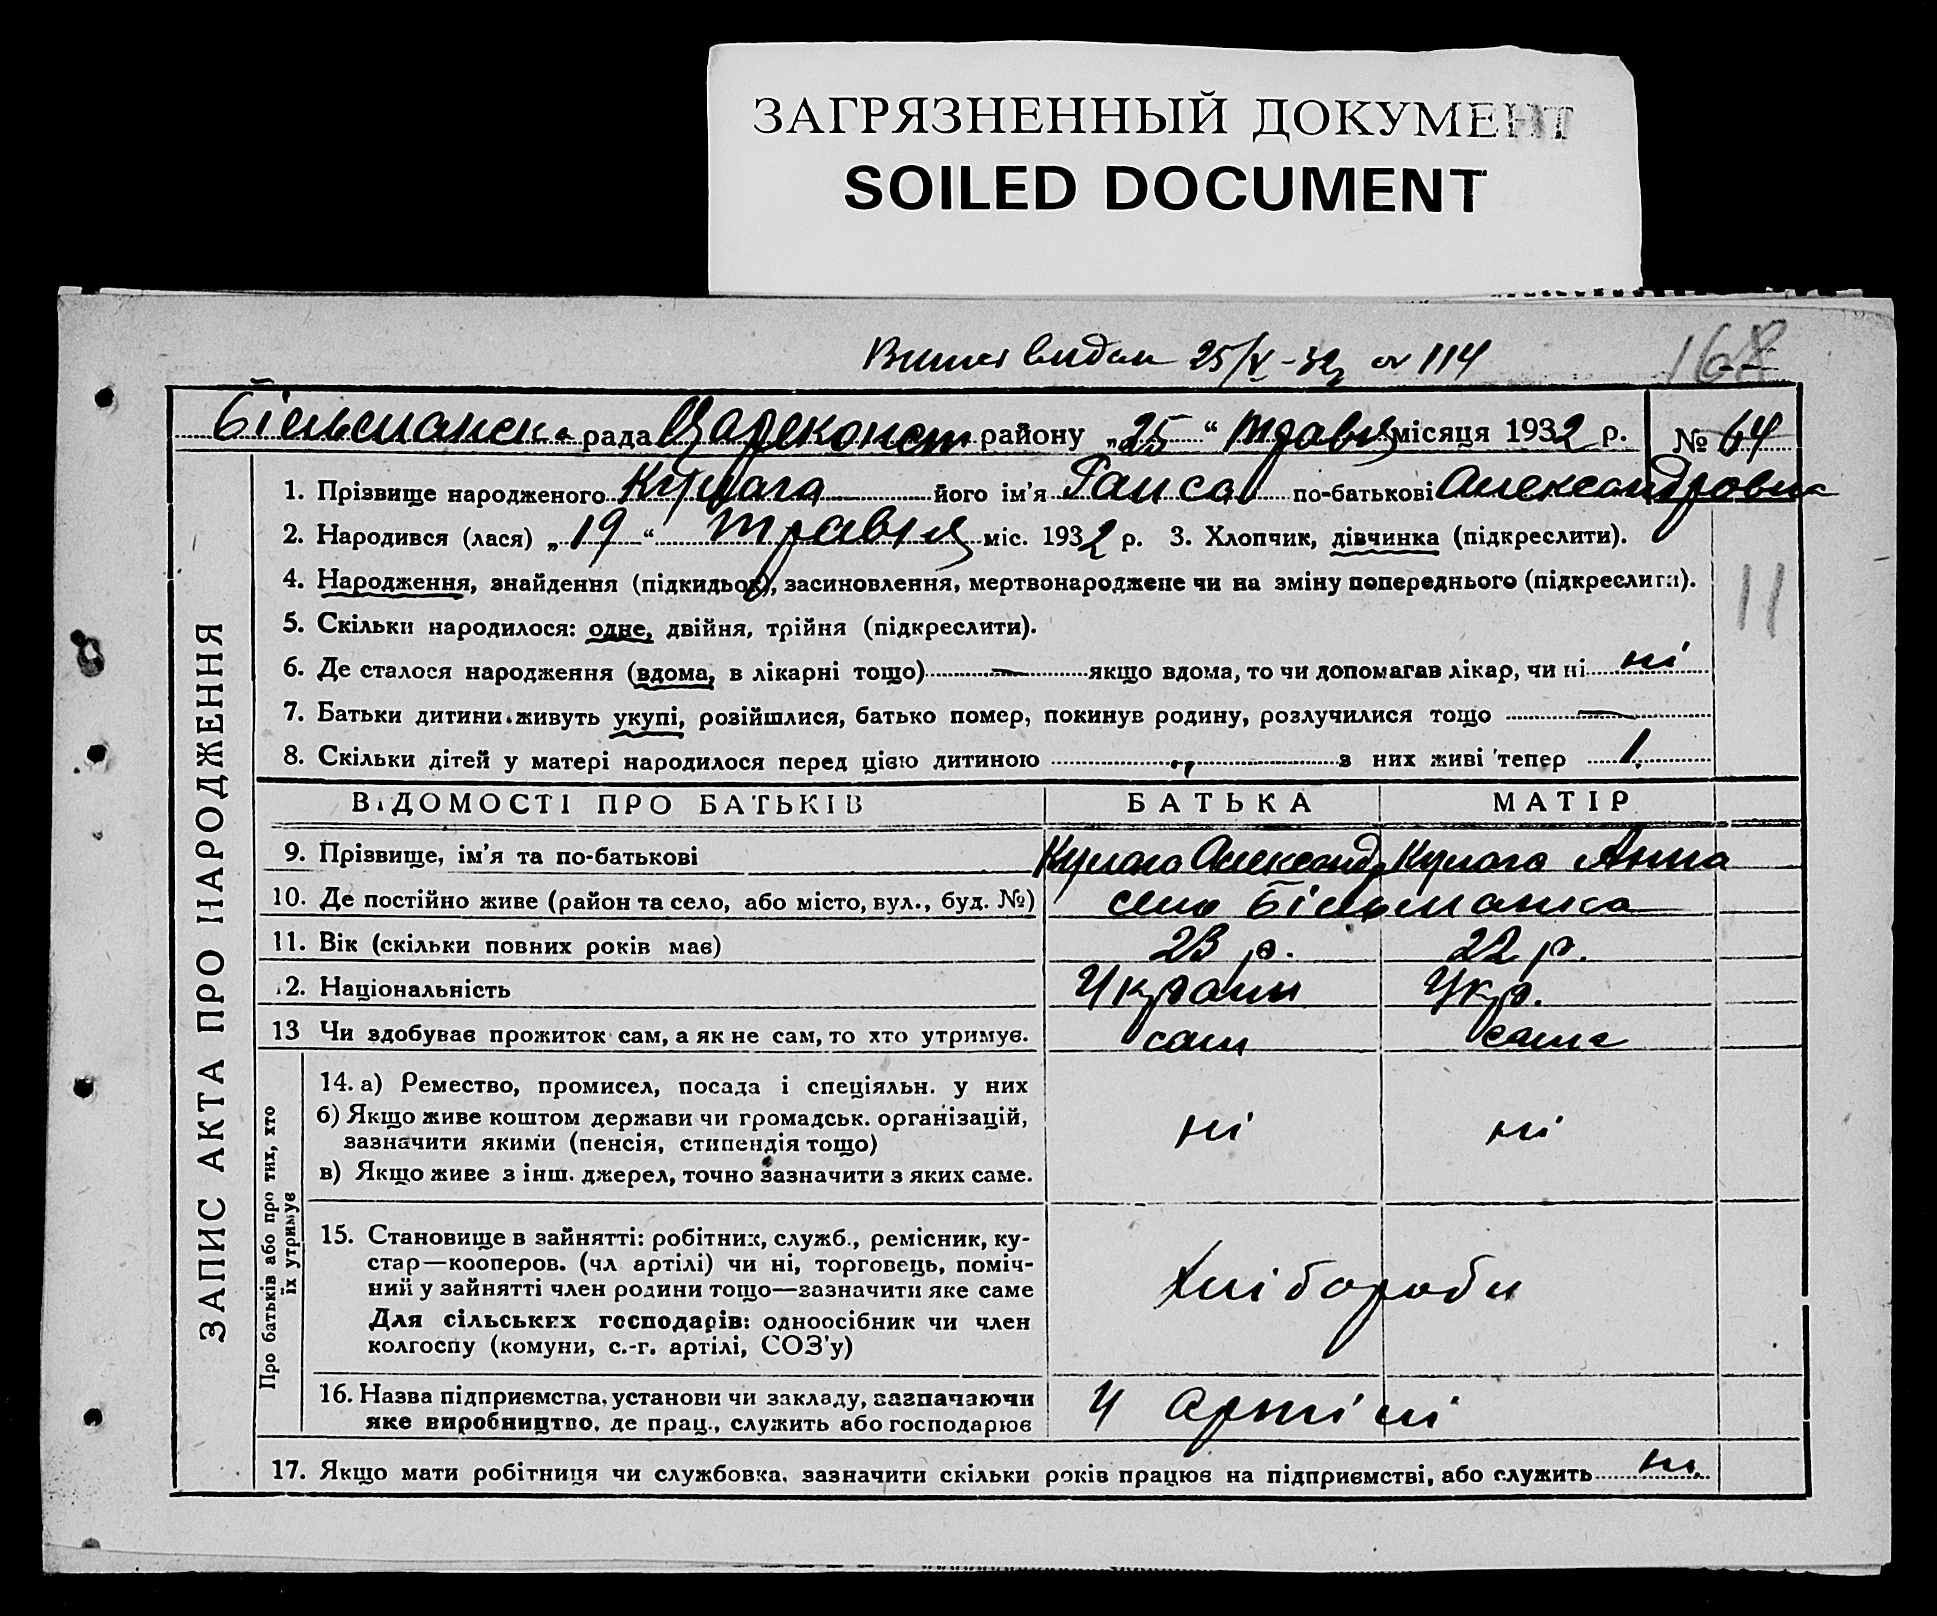 ЗАГРЯЗНЕННЫЙ ДОКУМЕНТ
SOILED DOCUMENT
видан 25/V-32 114
168
Більманськ рада Царекон район у „25“ травня місяця 1932 р. № 64
ЗАПИС АКТА ПРО НАРОДЖЕННЯ
1. Прізвище народженого Кулага його ім'я Раиса по-батькові Александровна
2. Народився (лася) „19“ травня міс. 1932 р. 3. Хлопчик, дівчинка (підкреслити).
4. Народження, знайдення (підкидьок), засиновлення, мертвонароджене чи на зміну попереднього (підкреслити).
11
5. Скільки народилося: одне, двійня, трійня (підкреслити).
6. Де сталося народження (вдома, в лікарні тощо) — якщо вдома, то чи допомагав лікар, чи ні ні
7. Батьки дитини живуть укупі, розійшлися, батько помер, покинув родину, розлучилися тощо —
8. Скільки дітей у матері народилося перед цією дитиною з них живі тепер 1.
ВІДОМОСТІ ПРО БАТЬКІВ БАТЬКА МАТІР
9. Прізвище, ім'я та по-батькові Кулага Александр Кулага Анна
10. Де постійно живе (район та село, або місто, вул., буд. №) село Більманка
11. Вік (скільки повних років має) 23 р. 22 р.
12. Національність Украин Укр.
13 Чи здобуває прожиток сам, а як не сам, то хто утримує. сам сама
Про батьків або про тих, хто
їх утримує
14. а) Ремество, промисел, посада і спеціяльн. у них
б) Якщо живе коштом держави чи громадськ. організацій, ні ні
зазначити якими (пенсія, стипендія тощо)
в) Якщо живе з інш. джерел, точно зазначити з яких саме.
15. Становище в зайнятті: робітник, служб., ремісник, ку-
стар—кооперов. (чл артілі) чи ні, торговець, поміч-
ний у зайнятті член родини тощо—зазначити яке саме Хлібороби
Для сільських господарів: одноосібник чи член
колгоспу (комуни, с.-г. артілі, СОЗ'у)
16. Назва підприємства, установи чи закладу, зазначаючи У артілі
яке виробництво, де прац., служить або господарює
17. Якщо мати робітниця чи службовка, зазначити скільки років працює на підприємстві, або служить ні